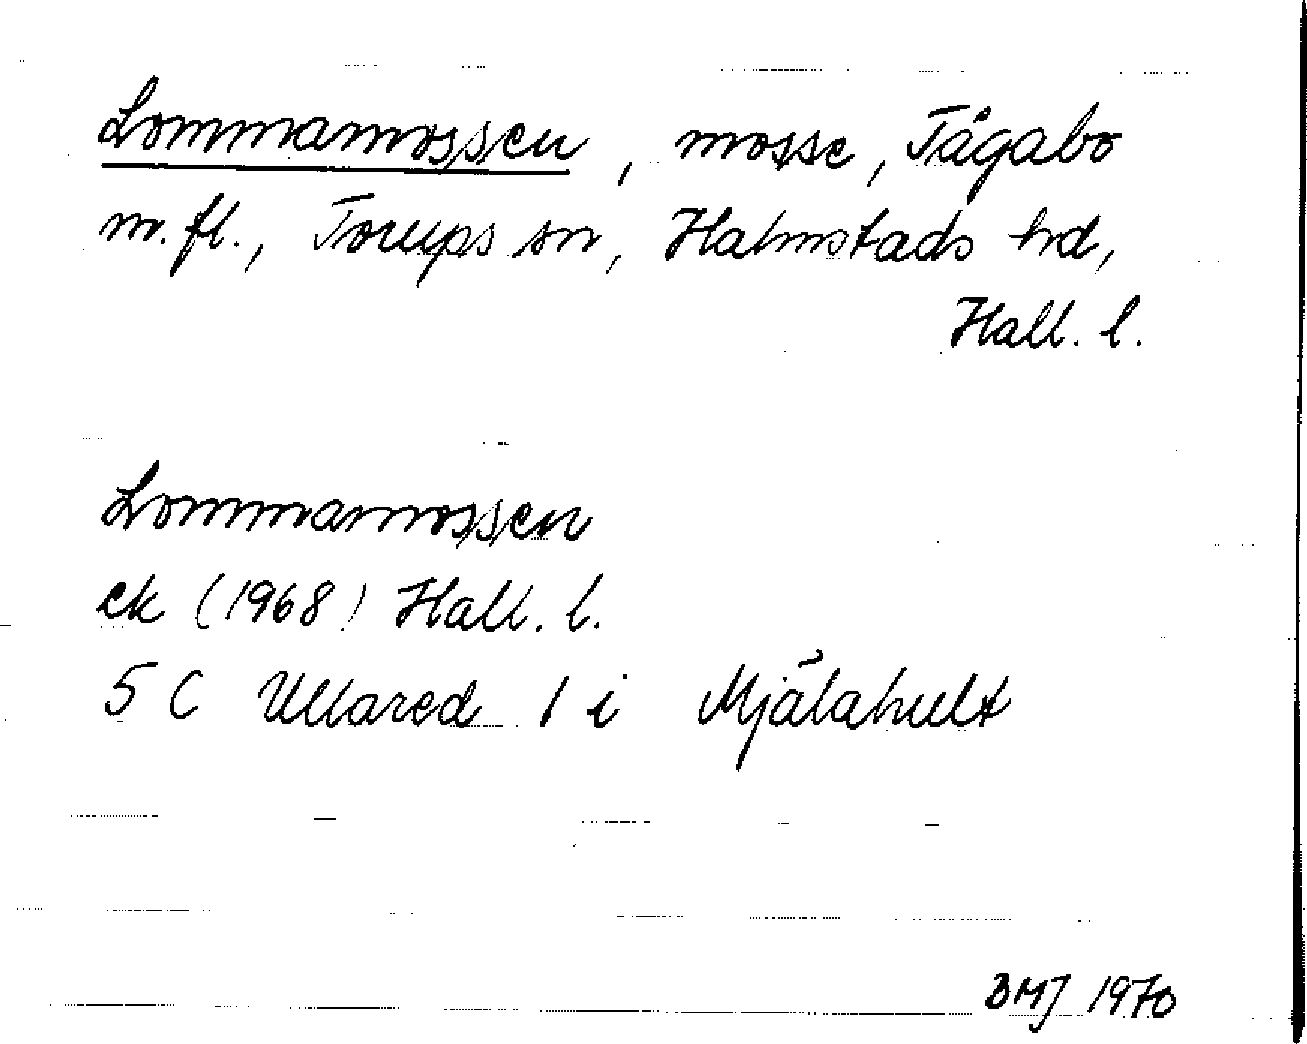 Lommamossen, mosse, Tågabo
m.fl., Torups sn, Halmstads hd,
Hall. l.
Lommamossen
ek (1968) Hall. l.
5 C Ullared 1 i Mjälahult
BMJ 1970